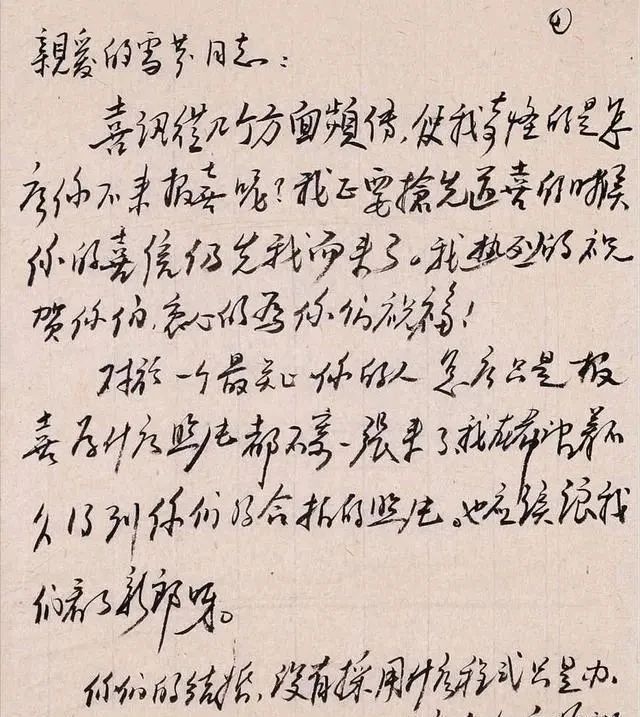 ①
親爱的雪芬同志：
喜訊從几个方面頻傳，使我奇怪的是怎
么你不来报喜呢？我正要搶先道喜的时候
你的喜信仍先我而来了。我热烈的祝
贺你们，衷心的為你们祝福！
对於一个最关心你的人怎么只是报
喜为什么照片都不寄一張来了，我在希望着不
久得到你们的合拍的照片。也应該讓我
们看了新郎呀。
你们的结婚，没有採用什么程式只是办